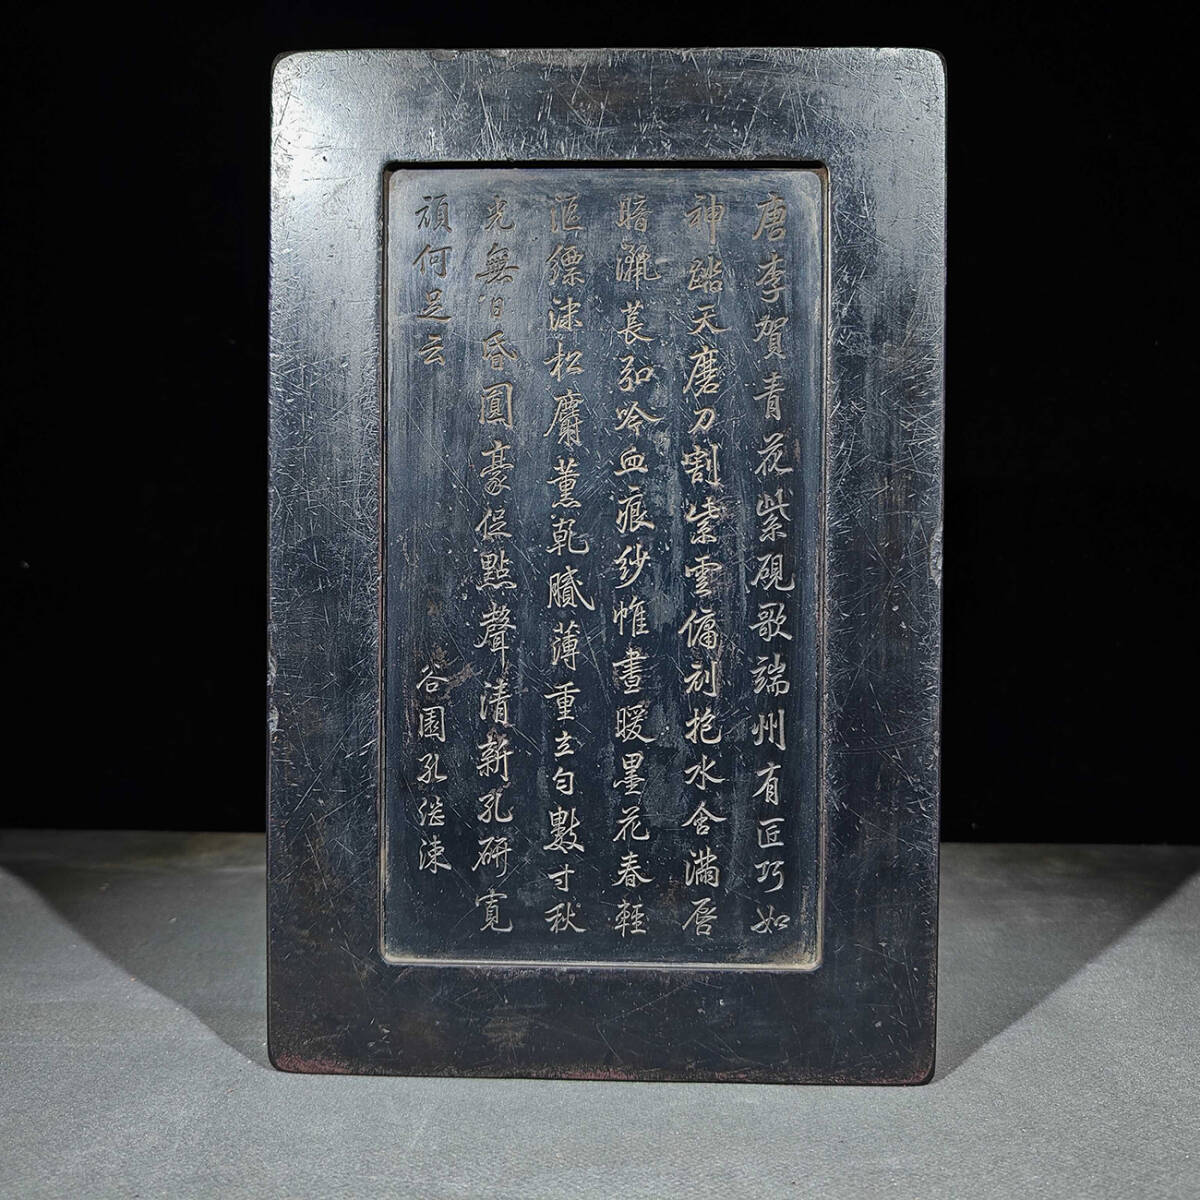 唐李賀青花紫硯歌端州有匠巧如
神踏天磨刀割紫雲傭刓抱水含滿唇
暗灑萇弘吟血痕紗帷晝暖墨花春輕
漚縹沫松麝薰乾膩薄重立勻數寸秋
光無日昏圓豪促點聲清新孔硏寬
頑何足云
谷園孔繼涑